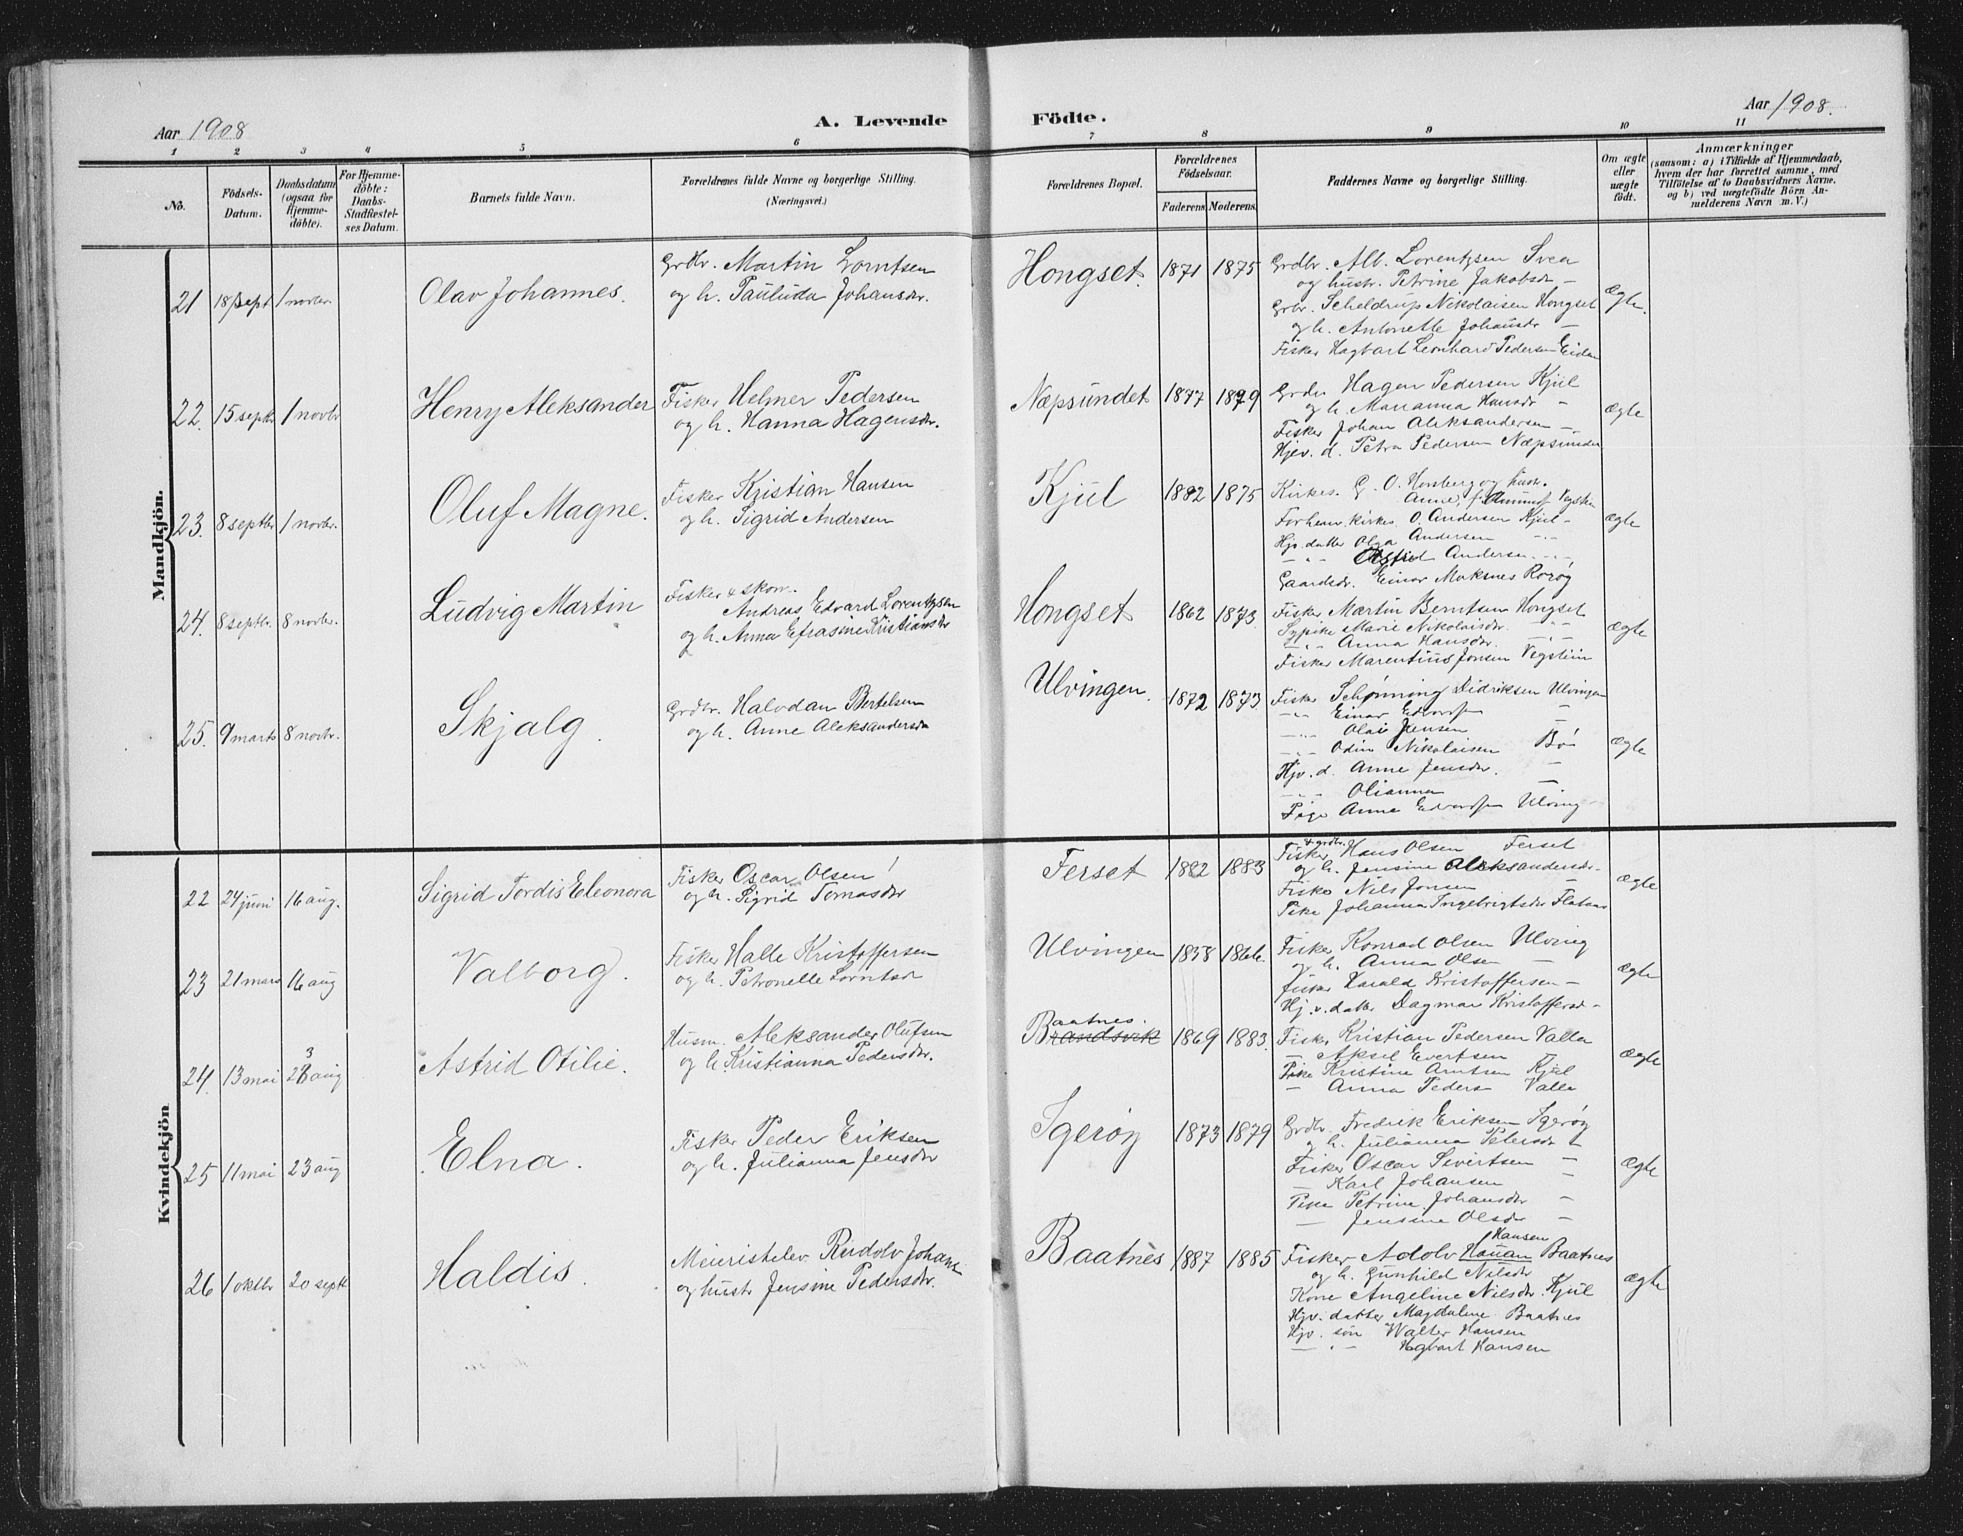 Aar 1908
A. Levende Födte.
Aar 1908.
1 2 3 4 5 6 7 8 9 10 11
No.
Födsels-Datum.
Daabsdatum (ogsaa for Hjemme-döbte).
For Hjemme-döbte: Daabs-Stadfæstel-ses Datum.
Barnets fulde Navn.
Forældrenes fulde Navne og borgerlige Stilling.
(Næringsvei.)
Forældrenes Bopæl.
Forældrenes Födselsaar.
Faderens. Moderens.
Faddernes Navne og borgerlige Stilling.
Om ægte eller uægte födt.
Anmærkninger
(saasom: a) i Tilfælde af Hjemmedaab, hvem der har forrettet samme, med Tilföielse af to Daabsvidners Navne, og b) ved uægtefödte Börn An-melderens Navn m. V.)
Mandkjön.
21 18 sept 1 novbr. Olav Johannes.
Grdbr. Martin Lorntsen
og h. Pauluda Johansdr.
Hongset. 1871 1875
Grdbr. Alb. Lorentzen Svea
og hustr. Petrine Jakobsdr —
Grbr. Scheldrup Nikolaisen Hongset
og h. Antonette Johansdr —
Fisker Hagbart Leonhard Pedersen Eiden
ægte.
22. 15 septbr 1 novbr Henry Aleksander
Fisker Helmer Pedersen
og h. Hanna Hagensdr.
Næpsundet 1877 1879
Grdbr Hagen Pedersen Kjul
og h. Marianna Hansdr —
Fisker Johan Aleksandersen —
Hjev. d. Petra Pedersen Næpsundet
ægte
23. 8 septbr 1 novbr. Oluf Magne.
Fisker Kristian Hansen
og h. Sigrid Andersen
Kjul 1882 1875
Kirkes. G. O. Honberg og hustr.
Anne
Forhenv. kirkes. O. Andersen Kjul —
Hjv. datter Olga Andersen —
— Astrid Andersen —
Gaardsdr. Einar Moksnes Rorøy
ægte
24. 8 septbr. 8 novbr. Ludvig Martin
Fisker & skom.
Andreas Edvard Lorentzsen
og h. Anna Efrasine Kristiansdr
Hongset 1862 1873
Fisker Martin Berntsen Hongset
Sypike Marie Nikolaisdr. —
— Anna Hansdr. —
Fisker Marentius Jonsen Vegstein
ægte
25. 9 marts 8 novbr. Skjalg.
Grdbr. Halvdan Bertelsen
og h. Anne Aleksandersdr
Ulvingen. 1872 1873
Fisker Schønning Didriksen Ulvingen
— Einar Edvardsen —
— Olai Jensen
— Odin Nikolaisen Bø
Hjv. d. Anne Jensdr. —
— Olianna —
Pige Anne Edvardsen Ulving
ægte
Kvindekjön
22 24 juni 16 aug. Sigrid Tordis Eleonora
Fisker Oscar Olsen
og h. Sigrid Tomasdr
Ferset 1882 1883
Fisker & grdbr. Hans Olsen Ferset
og h. Jensine Aleksandersdr. —
Fisker Nils Jonsen —
Pike Johanna Ingebrigtsdr Flatøen
ægte
23 21 mars 16 aug Valborg.
Fisker Halle Kristoffersen
og h. Petronelle Lorntsdr
Ulvingen 1858 1866.
Fisker Konrad Olsen Ulving
og h. Anna Olsen —
fisker Harald Kristoffersen —
Hj.v. datter Dagmar Kristoffersdr —
ægte
24. 13 mai 23 aug Astrid Otilie.
Husm. Aleksander Olufsen
og h. Kristianna Pedersdr.
Baatnes.
Brandsvik 1869 1883.
Fisker Kristian Pedersen Valla
— Aksel Evertsen —
Pike Kristine Arntsen Kjul
— Anna Peders Valla
ægte
25 11 mai 23 aug Elna.
Fisker Peder Eriksen
og h. Julianna Jensdr
Igerøy 1873 1879
Grdbr. Fredrik Eriksen Igerøy
og h. Julianna Petersdr —
Fisker Oscar Sivertsen —
— Karl Johansen —
Pike Petrine Johansdr —
— Jensine Olsdr —
ægte
26 1 oktbr 20 septbr Haldis.
Meieristelev Rudolv Johans
og hustr Jensine Pedersdr.
Baatnes 1887 1885
Hansen
Fisker Adolv Hauan Baatnes
og h. Gunhild Nilsdr
Kone Angeline Nilsdr. Kjul
Hjv. datter Magdalene Baatnes
Hjv. søn Walter Hansen
— Hagbart Hansen
ægte